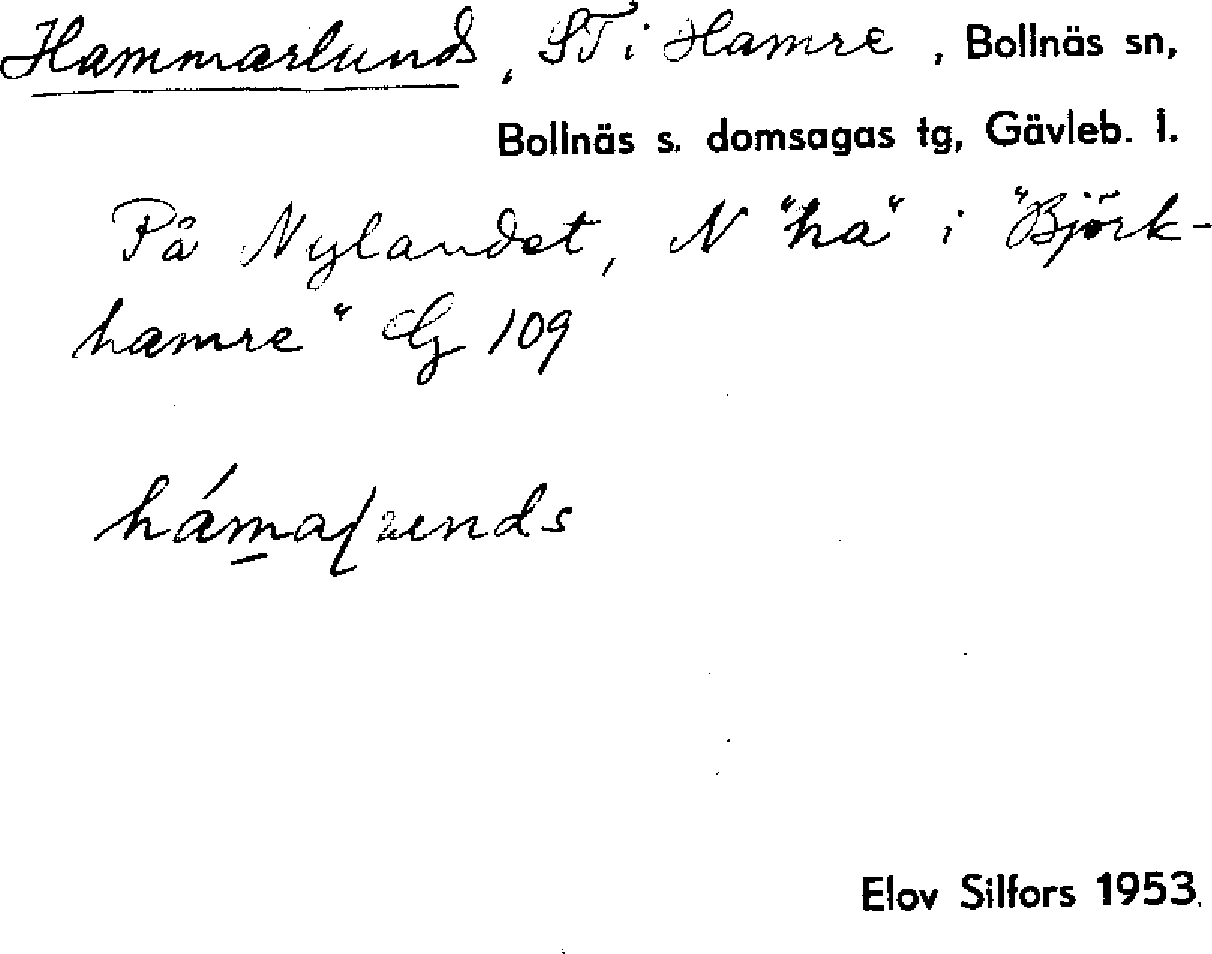 Hammarlunds, ST i Hamre, Bollnäs sn,
Bollnäs s. domsagas tg, Gävleb. l.
På Nylandet, N "ha" i "Björk-
hamre" Eg 109
Elov Silfors 1953.